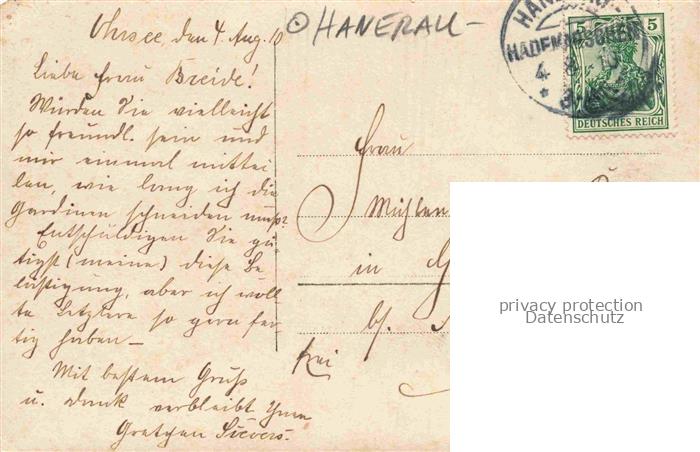 Ohrsee, den 4. Aug. 10
Liebe Frau Breide!
Würden Sie vielleicht
so freundl. sein und
mir einmal mittei
len, wie lang ich die
Gardinen schneiden muß?
Entschuldigen Sie gü
tigst (meine) diese Be
lästigung, aber ich woll
te Letztere so gern fer
tig haben –
Mit bestem Gruß
u. Dank verbleibt Ihre
Gretchen Sievers.
HANERAU –
HADEMARSCHEN
4 8 10
5 5
DEUTSCHES REICH
Frau
Mühlen
in
b/.
frei
privacy protection
Datenschutz